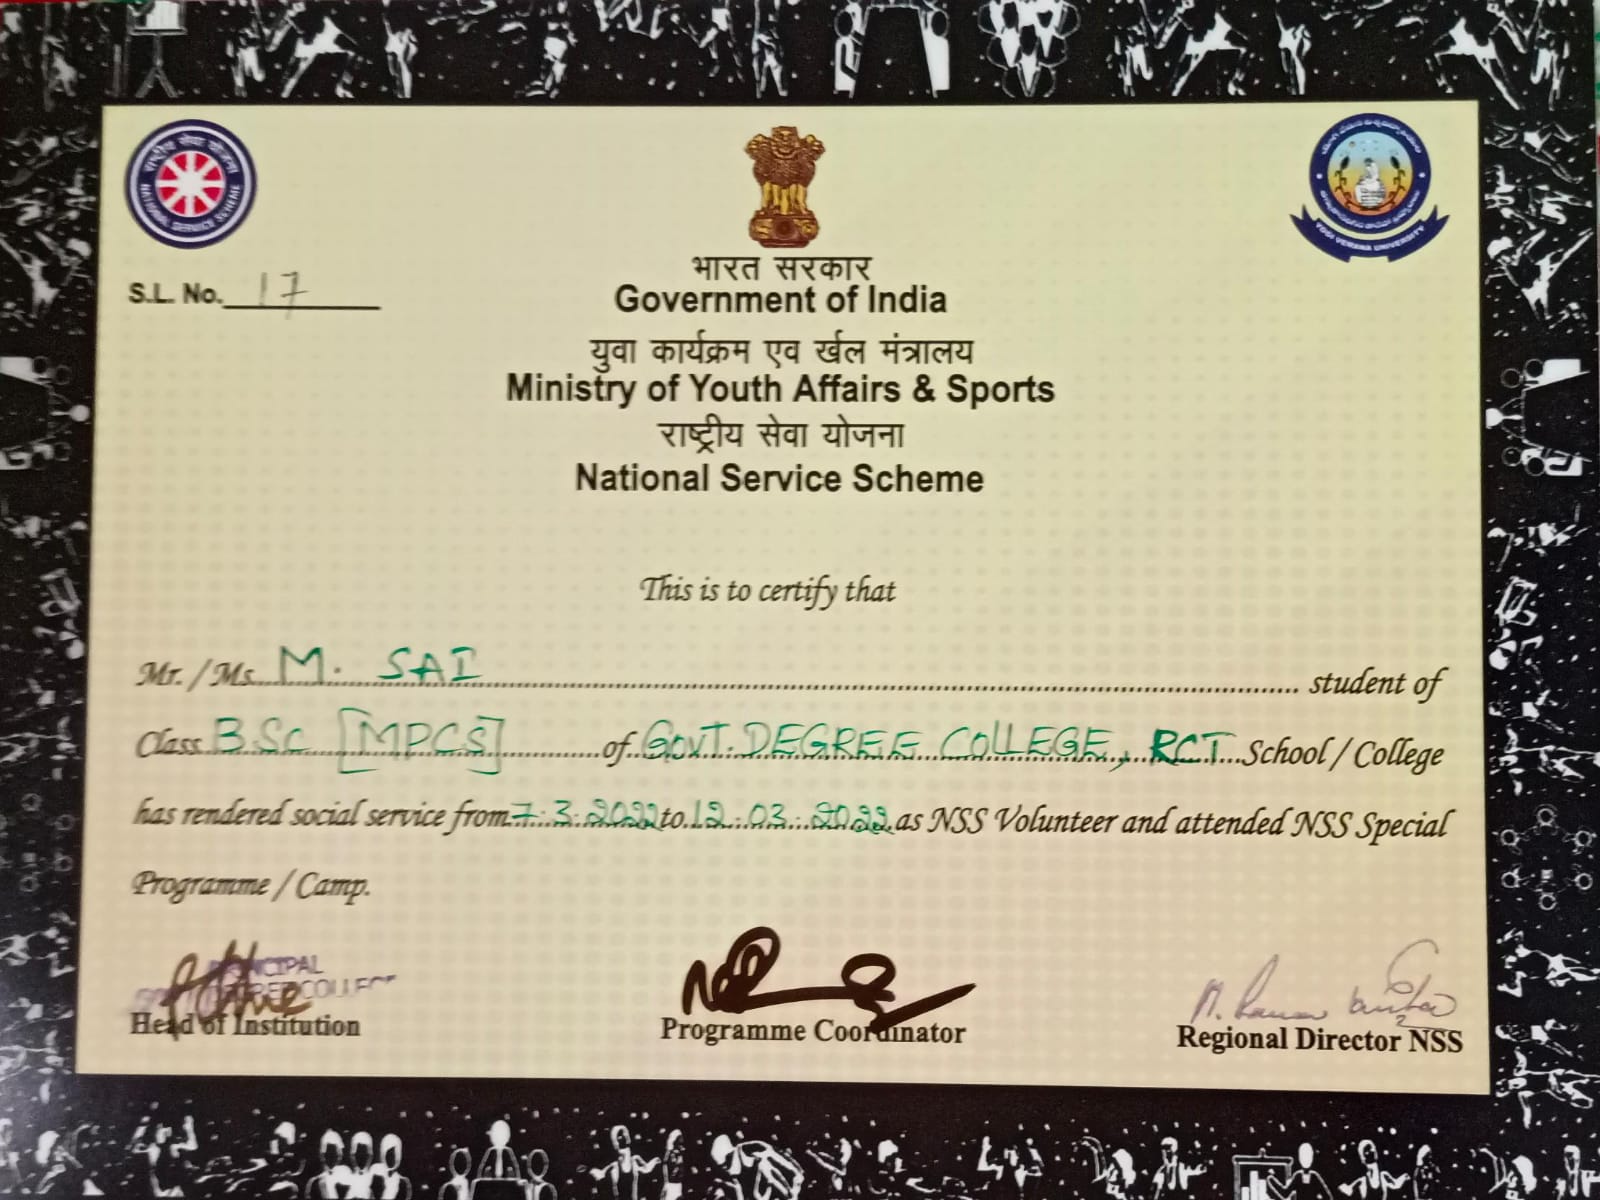 राष्ट्रीय सेवा योजना
NATIONAL SERVICE SCHEME
YOGI VEMANA UNIVERSITY
S.L. No. 17
भारत सरकार
Government of India
युवा कार्यक्रम एव र्खल मंत्रालय
Ministry of Youth Affairs & Sports
राष्ट्रीय सेवा योजना
National Service Scheme
This is to certify that
Mr. / Ms. M. SAI student of
Class B.Sc [MPCS] of GOVT. DEGREE COLLEGE, RCT School / College
has rendered social service from 7.3.2022 to 12.03.2022 as NSS Volunteer and attended NSS Special
Programme / Camp.
PRINCIPAL
DEGREE COLLEGE
Head of Institution
Programme Coordinator
Regional Director NSS